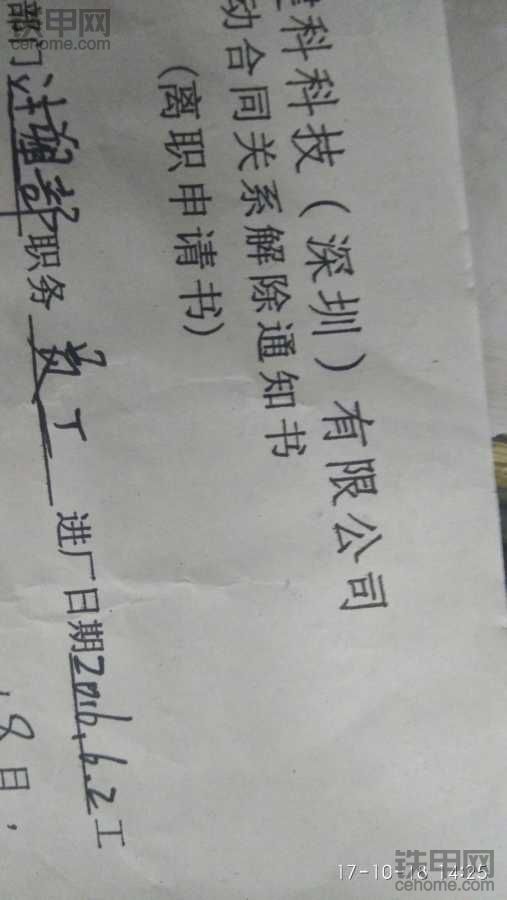 科科技（深圳）有限公司
动合同关系解除通知书
（离职申请书）
部门注塑部职务员工 进厂日期2016.6.2工
8日，
17-10-18 14:25
铁甲网
cehome.com
铁甲网
cehome.com